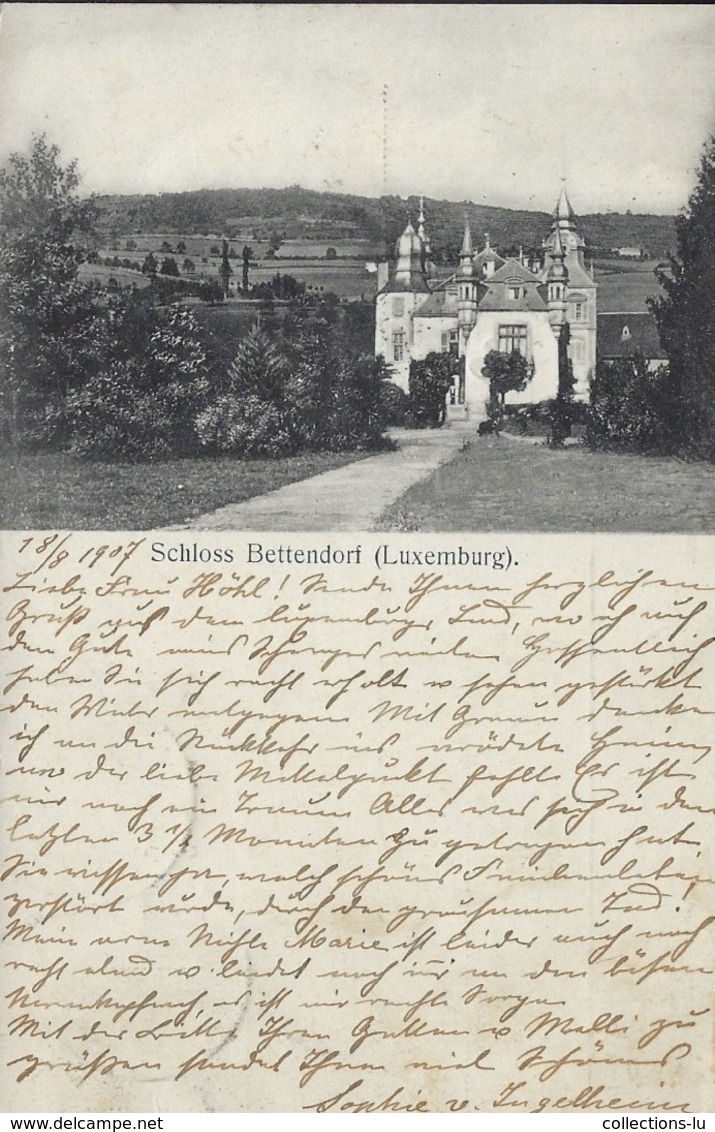 18/8 1907 Schloss Bettendorf (Luxemburg).
Liebe Frau Höhl! Sende Ihnen herzlichen
Gruß aus dem luxemburger Land, wo ich auf
dem Gute meines Schwagers Hoffentlich
haben Sie sich recht erholt u sehen gestärkt
dem Winter entgegen. Mit Grauen denke
ich an die Rückkehr ins verödete Heim,
wo der liebe Mittelpunkt fehlt. Es ist
mir noch ein Traum Alles was sich in den
letzten 3 1/2 Monaten zu getragen hat.
Sie wissen ja, welch schönes Familienleben,
zerstört wurde, durch den grausamen Tod.
Mein arme Nichte Marie ist leider auch noch
recht elend u. leidet noch an den bösen
es ist mir rechte Sorge.
Mit der Bitte Ihren Gatten u Malli zu
grüßen sendet Ihnen viel Schönes
Sophie v. Ingelheim
collections-lu